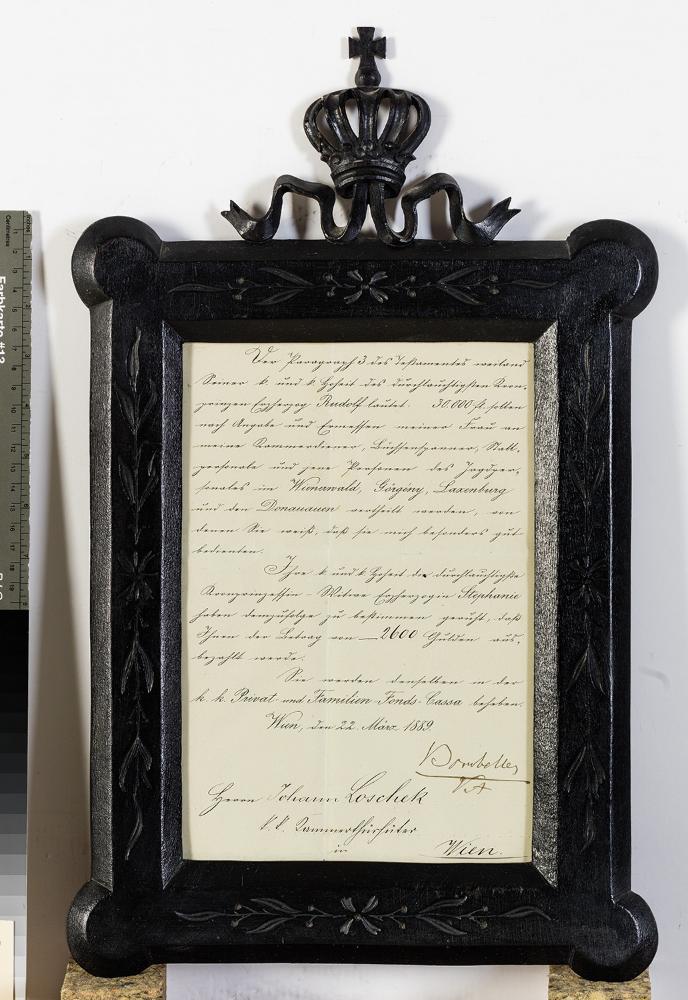 Der Paragraph 3 des Testamentes weiland
Seiner k. und k. Hoheit des durchlauchtigsten Kron-
prinzen Erzherzog Rudolf lautet: 30.000 fl. sollen
nach Angabe und Ermessen meiner Frau an
meine Kammerdiener, Büchsenspanner, Stall-
personale und jene Personen des Jagdper-
sonales im Wienerwald, Görgény, Laxenburg
und den Donauauen vertheilt werden, von
denen Sie weiß, daß sie mich besonders gut
bedienten.
Ihre k. und k. Hoheit die durchlauchtigste
Kronprinzessin-Witwe Erzherzogin Stephanie
haben demzufolge zu bestimmen geruht, daß
Ihnen der Betrag von 2600 Gulden aus-
bezahlt werde.
Sie werden denselben in der
k. k. Privat- und Familien-Fonds-Cassa beheben.
Wien, den 22. März 1889.
Bombelles
VA
Herrn Johann Loschek
k. k. Kammerthürhüter
in
Wien.
Centimetres
Farbkarte #13